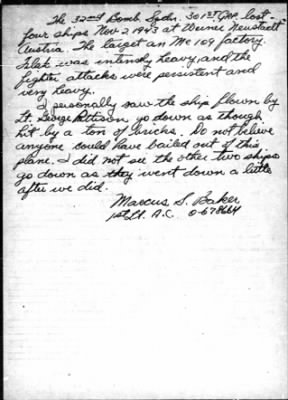 The 32nd Bomb Sqdn. 301st Grp. lost
four ships Nov. 2 1943 at Weiner Neustadt
Austria. The target an Me 109 factory.
Flak was intensely heavy, and the
fighter attacks were persistent and
very heavy.
I personally saw the ship flown by
Lt. George Pattison go down as though
hit by a ton of bricks. Do not believe
anyone could have bailed out of this
plane. I did not see the other two ships
go down as they went down a little
after we did.
Marcus S. Baker
1st Lt. A.C. 0-678664